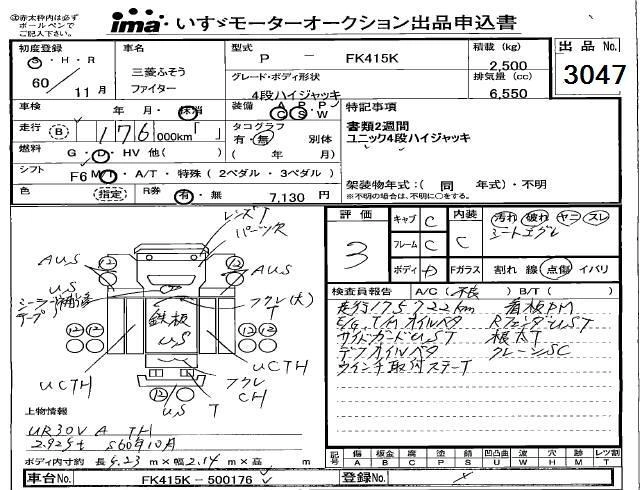 ②赤太枠内は必ず
ボールペンで
ご記入下さい。
ima・いすゞモーターオークション出品申込書
初度登録
S・H・R
60 / 11 月
車名
三菱ふそう
ファイター
型式
P － FK415K
グレード・ボディ形状
4段ハイジャッキ
積載 (kg)
2,500
排気量 (cc)
6,550
出品 No.
3047
車検 年・月・抹消
装備 A P P
G S・W
特記事項
書類2週間
ユニック4段ハイジャッキ
走行 B 176,000km「 」
タコグラフ
有・無 別体
( 年 月)
燃料 G・D・HV 他( )
シフト F6 M/T・A/T・特殊(2ペダル・3ペダル)
架装物年式:( 同 年式)・不明
※不明の場合は、不明に○をする。
色 (指定) R券 有・無 7,130 円
評価
3
キャブ C
フレーム C
ボディ D
内装
C
Fガラス
汚れ 破れ ヤニ スレ
シートエグレ
割れ 線 点傷 イバリ
レンズT
パーツ欠
AUS
AUS
12 12
US
シーラー補修
テープ
フクレ(大)
T
鉄板
US
12 12 12 12
UCTH
UCTH
フクレ
CH
T
US
12
検査員報告 A/C(不良) B/T( )
走行175722km 看板PM
E/G,T/Mオイルベタ RフェンダUST
サイドガードUST 根太T
デフオイルベタ クレーンSC
ウインチ取付ステーT
上物情報
UR30V A TH
2.925t S60年10月
ボディ内寸約 長 5.23 m×幅 2.14 m×高 m
記号 傷 A 板金 B 腐 C 塗 P 錆 S 凹凸曲 U 破 W 穴 H 跡 M レツ割 T
車台No. FK415K－500176
登録No.